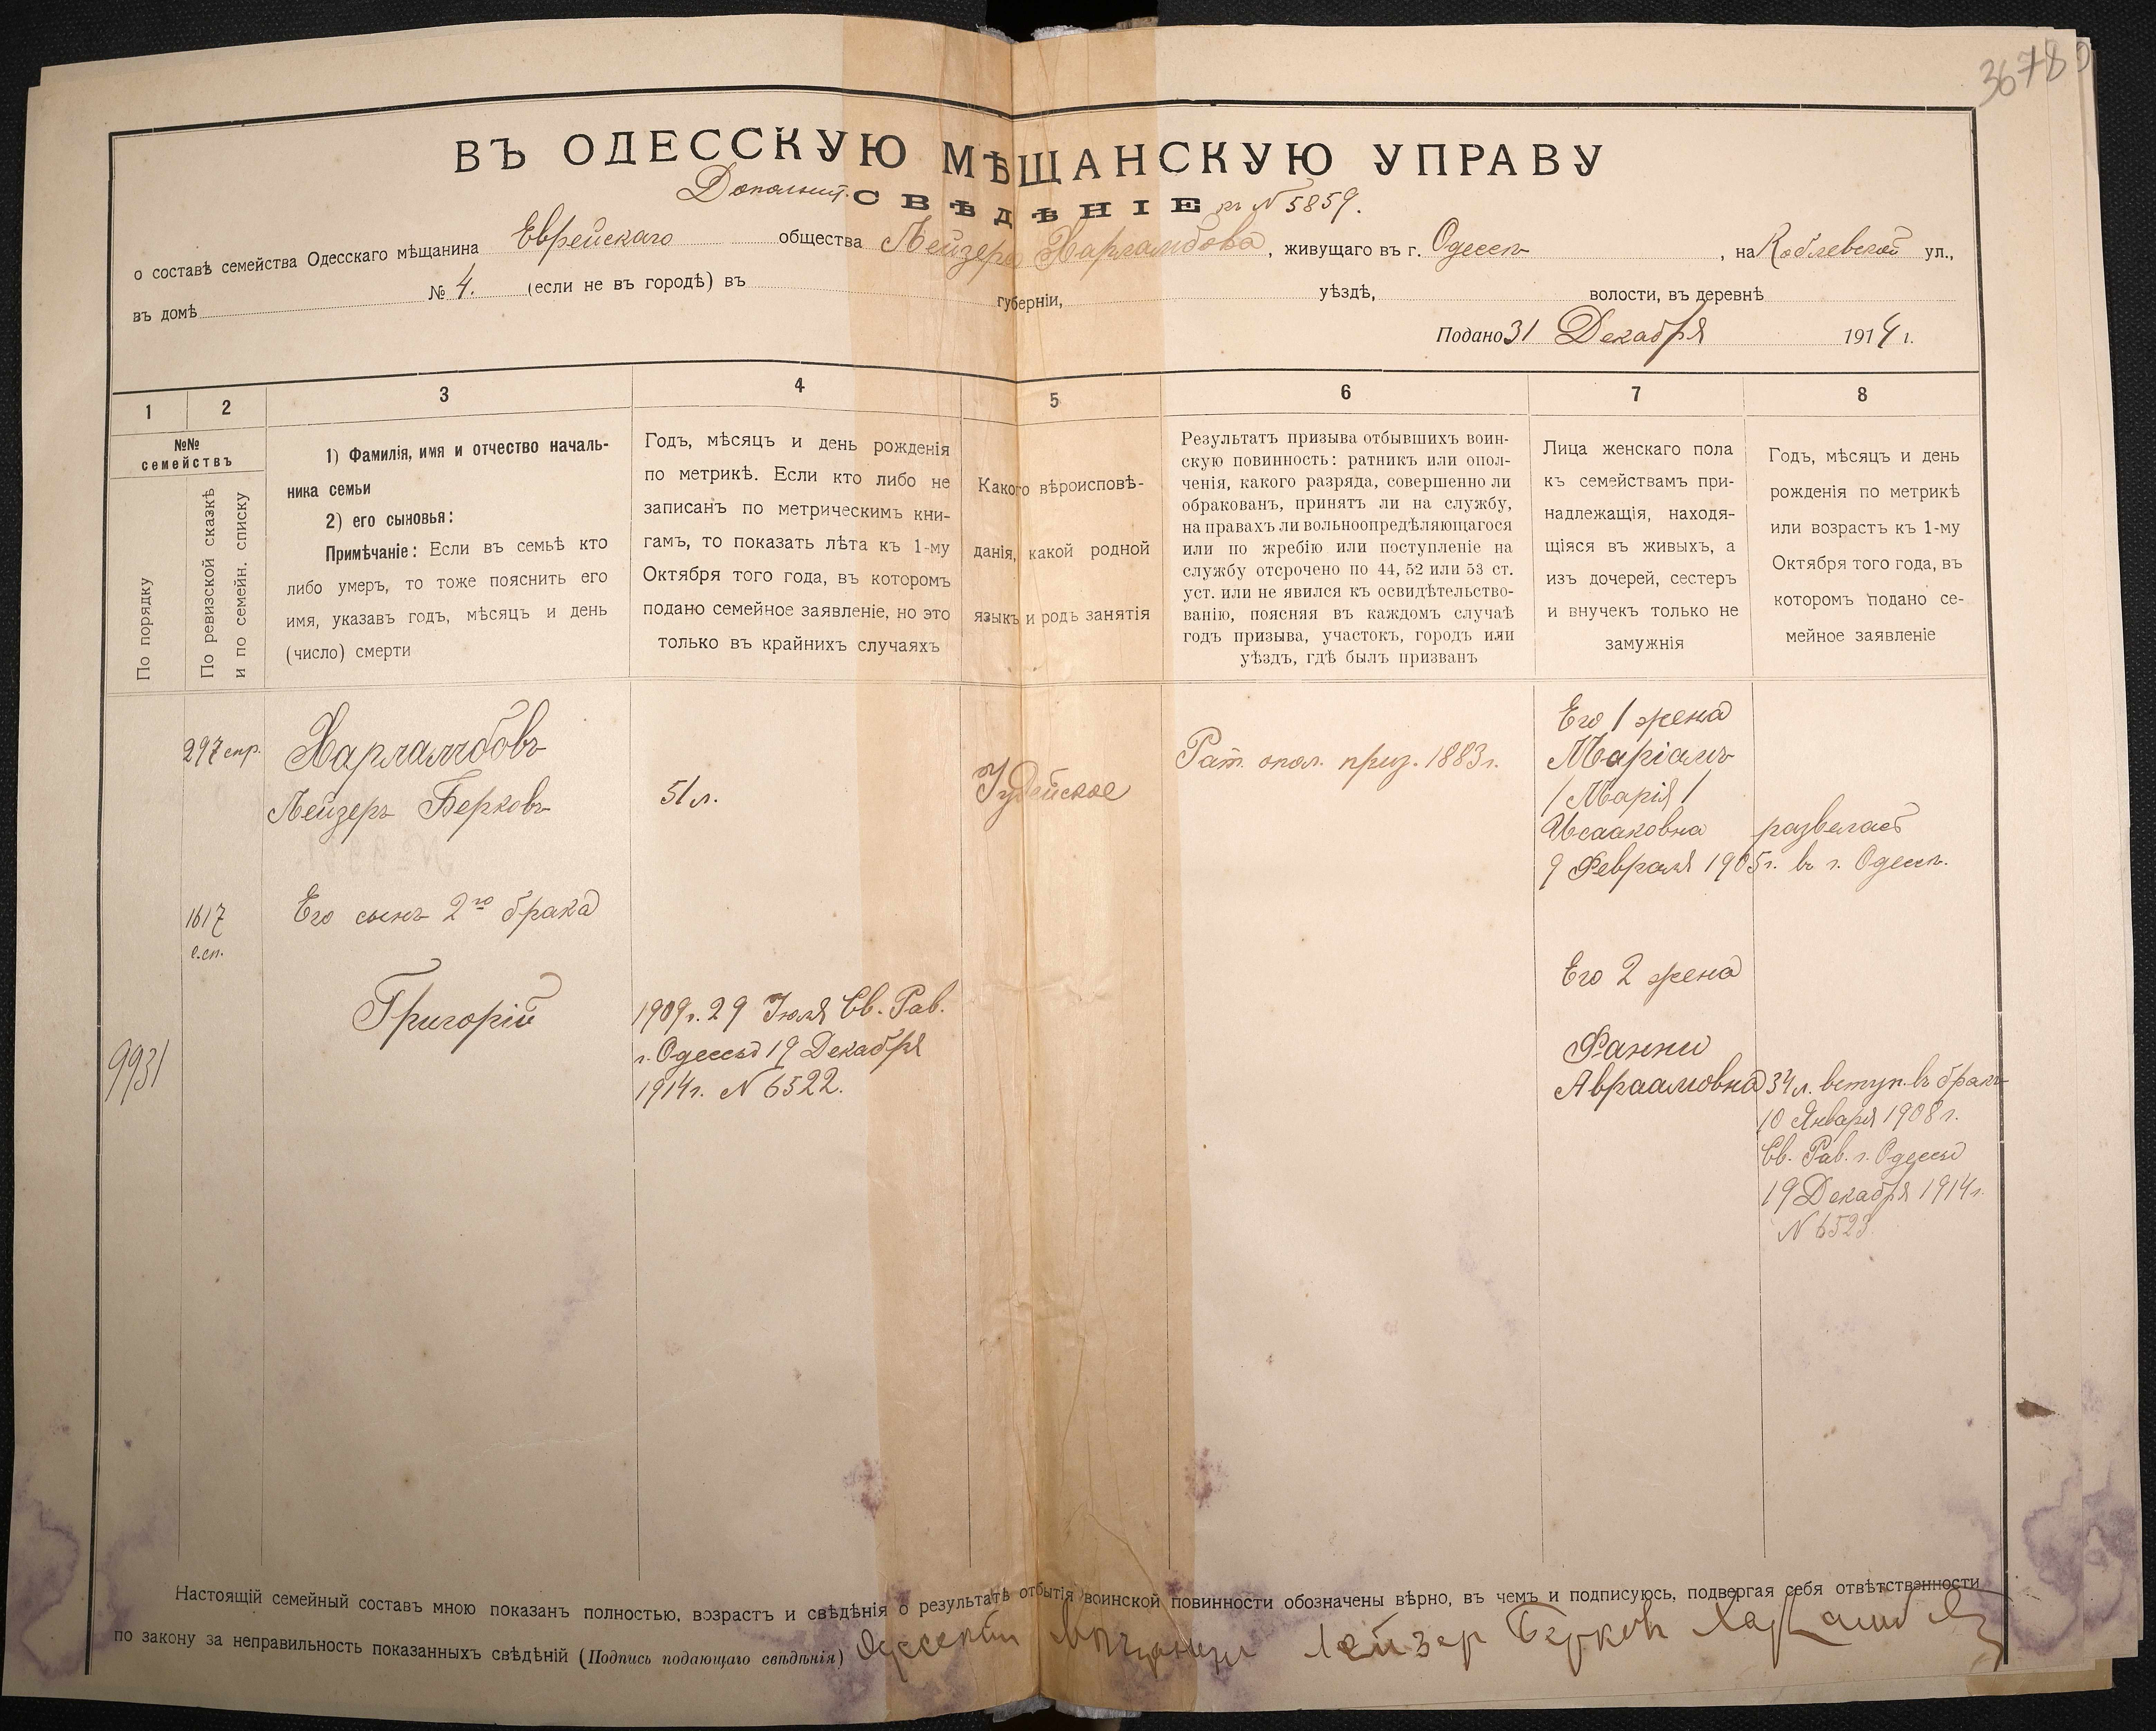 36780
ВЪ ОДЕССКУЮ МѢЩАНСКУЮ УПРАВУ
Дополнит. СВѢДѢНІЕ къ N 5859.
о составѣ семейства Одесскаго мѣщанина Еврейскаго общества Лейзера Харламбова, живущаго въ г. Одессѣ, на Коблевской ул.,
въ домѣ № 4. (если не въ городѣ) въ губерніи, уѣздѣ, волости, въ деревнѣ
Подано 31 Декабря 1914 г.
1 2 3 4 5 6 7 8
№№
семействъ
По порядку
По ревизской сказкѣ
и по семейн. списку
1) Фамилія, имя и отчество началь-
ника семьи
2) его сыновья:
Примѣчаніе: Если въ семьѣ кто
либо умеръ, то тоже пояснить его
имя, указавъ годъ, мѣсяцъ и день
(число) смерти
Годъ, мѣсяцъ и день рожденія
по метрикѣ. Если кто либо не
записанъ по метрическимъ кни-
гамъ, то показать лѣта къ 1-му
Октября того года, въ которомъ
подано семейное заявленіе, но это
только въ крайнихъ случаяхъ
Какого вѣроисповѣ-
данія, какой родной
языкъ и родъ занятія
Результатъ призыва отбывшихъ воин-
скую повинность: ратникъ или опол-
ченія, какого разряда, совершенно ли
обракованъ, принятъ ли на службу,
на правахъ ли вольноопредѣляющагося
или по жребію или поступленіе на
службу отсрочено по 44, 52 или 53 ст.
уст. или не явился къ освидѣтельство-
ванію, поясняя въ каждомъ случаѣ
годъ призыва, участокъ, городъ или
уѣздъ, гдѣ былъ призванъ
Лица женскаго пола
къ семействамъ при-
надлежащія, находя-
щіяся въ живыхъ, а
изъ дочерей, сестеръ
и внучекъ только не
замужнія
Годъ, мѣсяцъ и день
рожденія по метрикѣ
или возрастъ къ 1-му
Октября того года, въ
которомъ подано се-
мейное заявленіе
297 спр.
Харламбовъ
Лейзеръ Берковъ
51 л.
Іудейское
Рат. опол. приз. 1883 г.
Его 1 жена
Маріамъ
/ Марія /
Исааковна развелась
9 Февраля 1905 г. въ г. Одессѣ.
1617
с.сп.
Его сынъ 2го брака
Григорій
9931
1909 г. 29 Іюля Св. Рав.
г. Одессы 19 Декабря
1914 г. N 6522.
Его 2 жена
Фанни
Авраамовна 34 л. вступ. въ бракъ
10 Января 1908 г.
Св. Рав. г. Одессы
19 Декабря 1914 г.
N 6523
Настоящій семейный составъ мною показанъ полностью, возрастъ и свѣдѣнія о результатѣ отбытія воинской повинности обозначены вѣрно, въ чемъ и подписуюсь, подвергая себя отвѣтственности
по закону за неправильность показанныхъ свѣдѣній (Подпись подающаго свѣдѣнія) Одесскій мѣщанинъ Лейзер Берков Харламбов